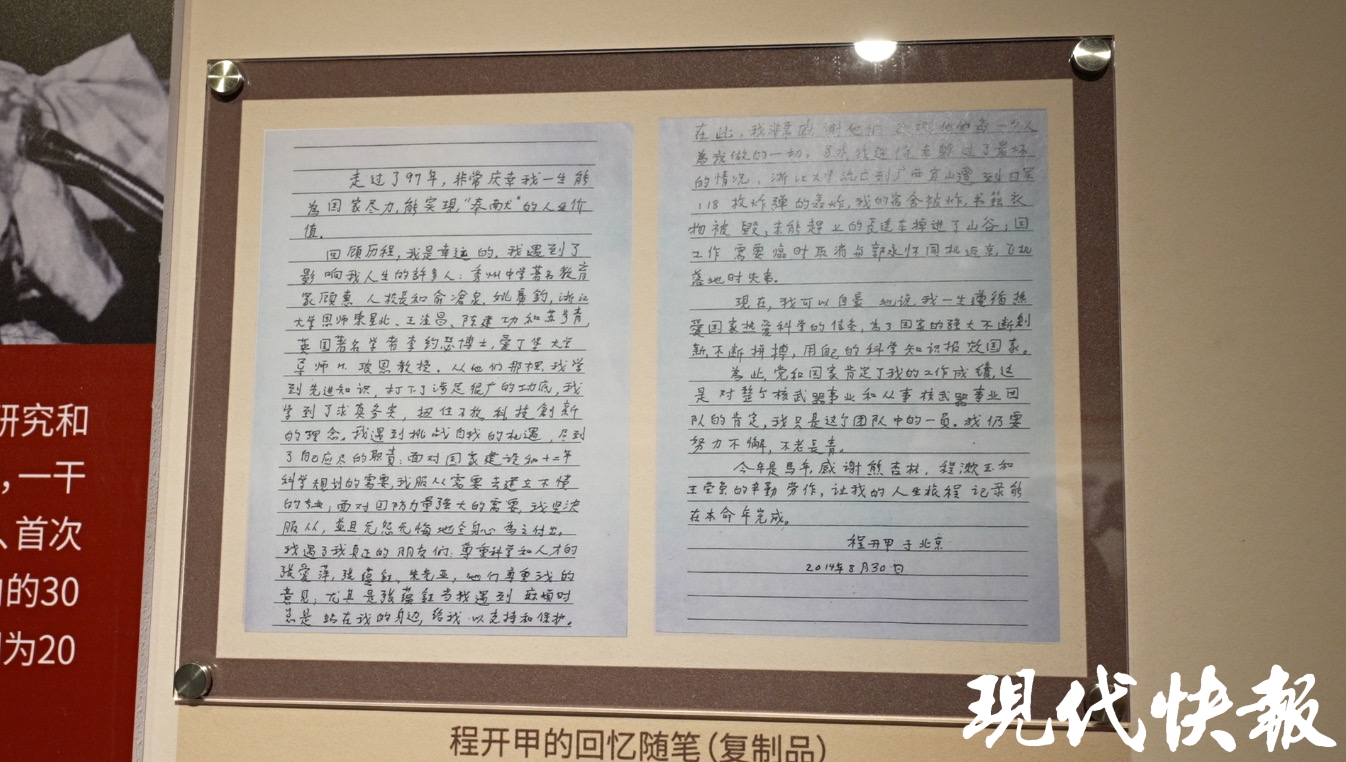 走过了97年，非常庆幸我一生能
为国家尽力，能实现“奉献”的人生价
值。
回顾历程，我是幸运的，我遇到了
影响我人生的许多人：秀州中学著名教育
家顾惠人校长和俞沧泉、姚廣钧，浙江
大学恩师束星北、王淦昌、陈建功和苏步青，
英国著名学者李约瑟博士，爱丁堡大学
导师M.玻恩教授。从他们那里，我学
到先进知识，打下了涉足很广的功底，我
学到了求真务实，扭住不放科技創新
的理念。我遇到挑战自我的机遇，尽到
了自己应尽的职责：面对国家建设和十二年
科学规划的需要，我服从需要去建立不懂
的专业；面对国防力量强大的需要，我坚决
服从，並且无怨无悔地全身心为之付出。
我遇了我真正的朋友们：尊重科学和人才的
张爱萍，张蕴鈺，朱光亚，他们尊重我的
意见，尤其是张蕴鈺当我遇到麻煩时
总是站在我的身边，给我以支持和保护。
在此，我非常感谢他们
為我做的一切。
的情况，浙江大学流亡到广西宜山遭到日寇
118枚炸弹的轰炸，我的宿舍被炸，书籍衣
物被毁，未能趕上的 車掉進了山谷；因
工作需要临时取消与郭永怀同机返京，飞机
落地时失事。
现在，我可以自豪地说，我一生遵循热
爱国家热爱科学的信条，为了国家的强大不断創
新，不断拼搏，用自己的科学知识报效国家。
為此，党和国家肯定了我的工作成绩，这
是对整个核武器事业和从事核武器事业团
队的肯定，我只是这个团队中的一员。我仍要
努力不懈，不老長青。
今年是马年，感谢熊杏林，程漱玉和
王莹莹的辛勤劳作，让我的人生旅程記录能
在本命年完成。
程开甲于北京
2014年8月30日
研究和
，一干
、首次
的30
为20
程开甲的回忆随笔（复制品）
現代快報